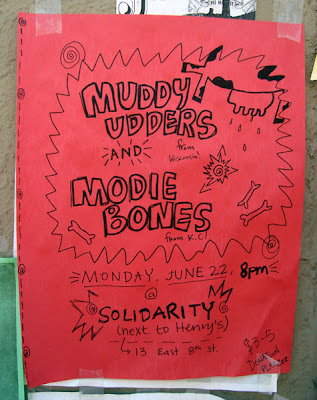 MUDDY
UDDERS
from
Wisconsin!
AND
MODIE
BONES
from K.C!
MONDAY, JUNE 22, 8pm
@
SOLIDARITY
(next to Henry's)
13 East 8th st.
$3-5
Donation
Please